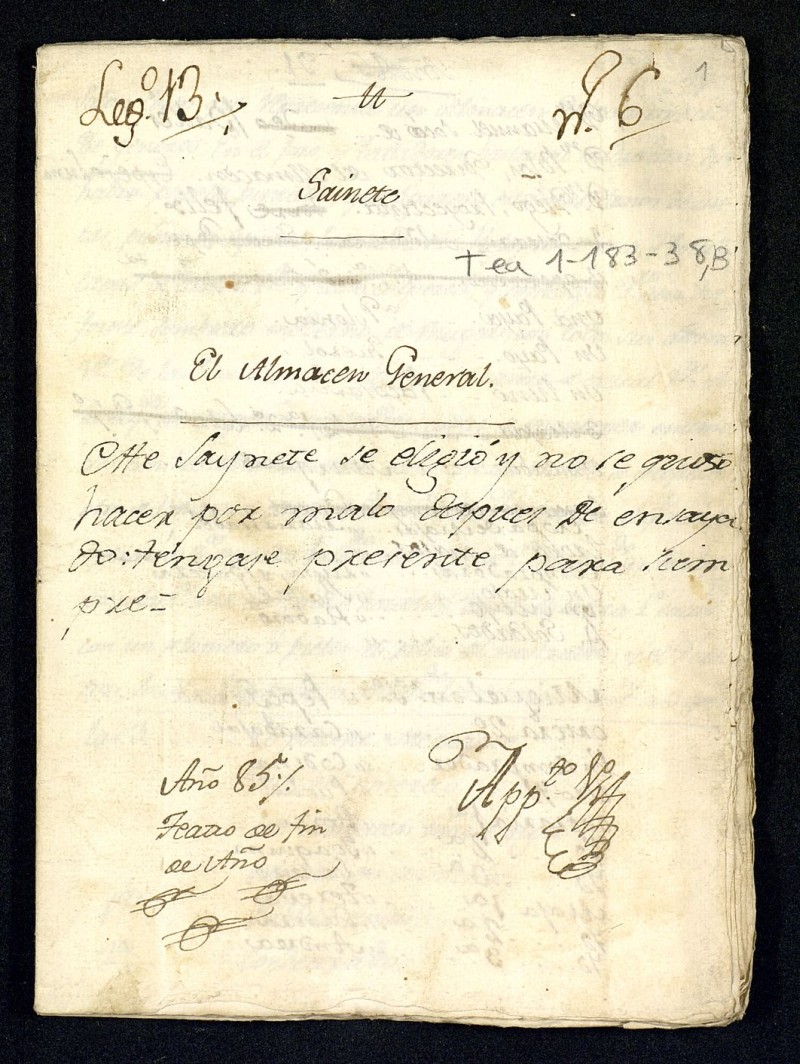 Leg.º 13.,
tt
n.º 6
1
Sainete
Tea 1-183-38,B
El Almacen General.
Este Saynete se eligió y no se quiso
hacer por malo despues de ensaya
do: tengase presente para siem
pre=
Año 85.
Teatro de fin
de Año
App.do